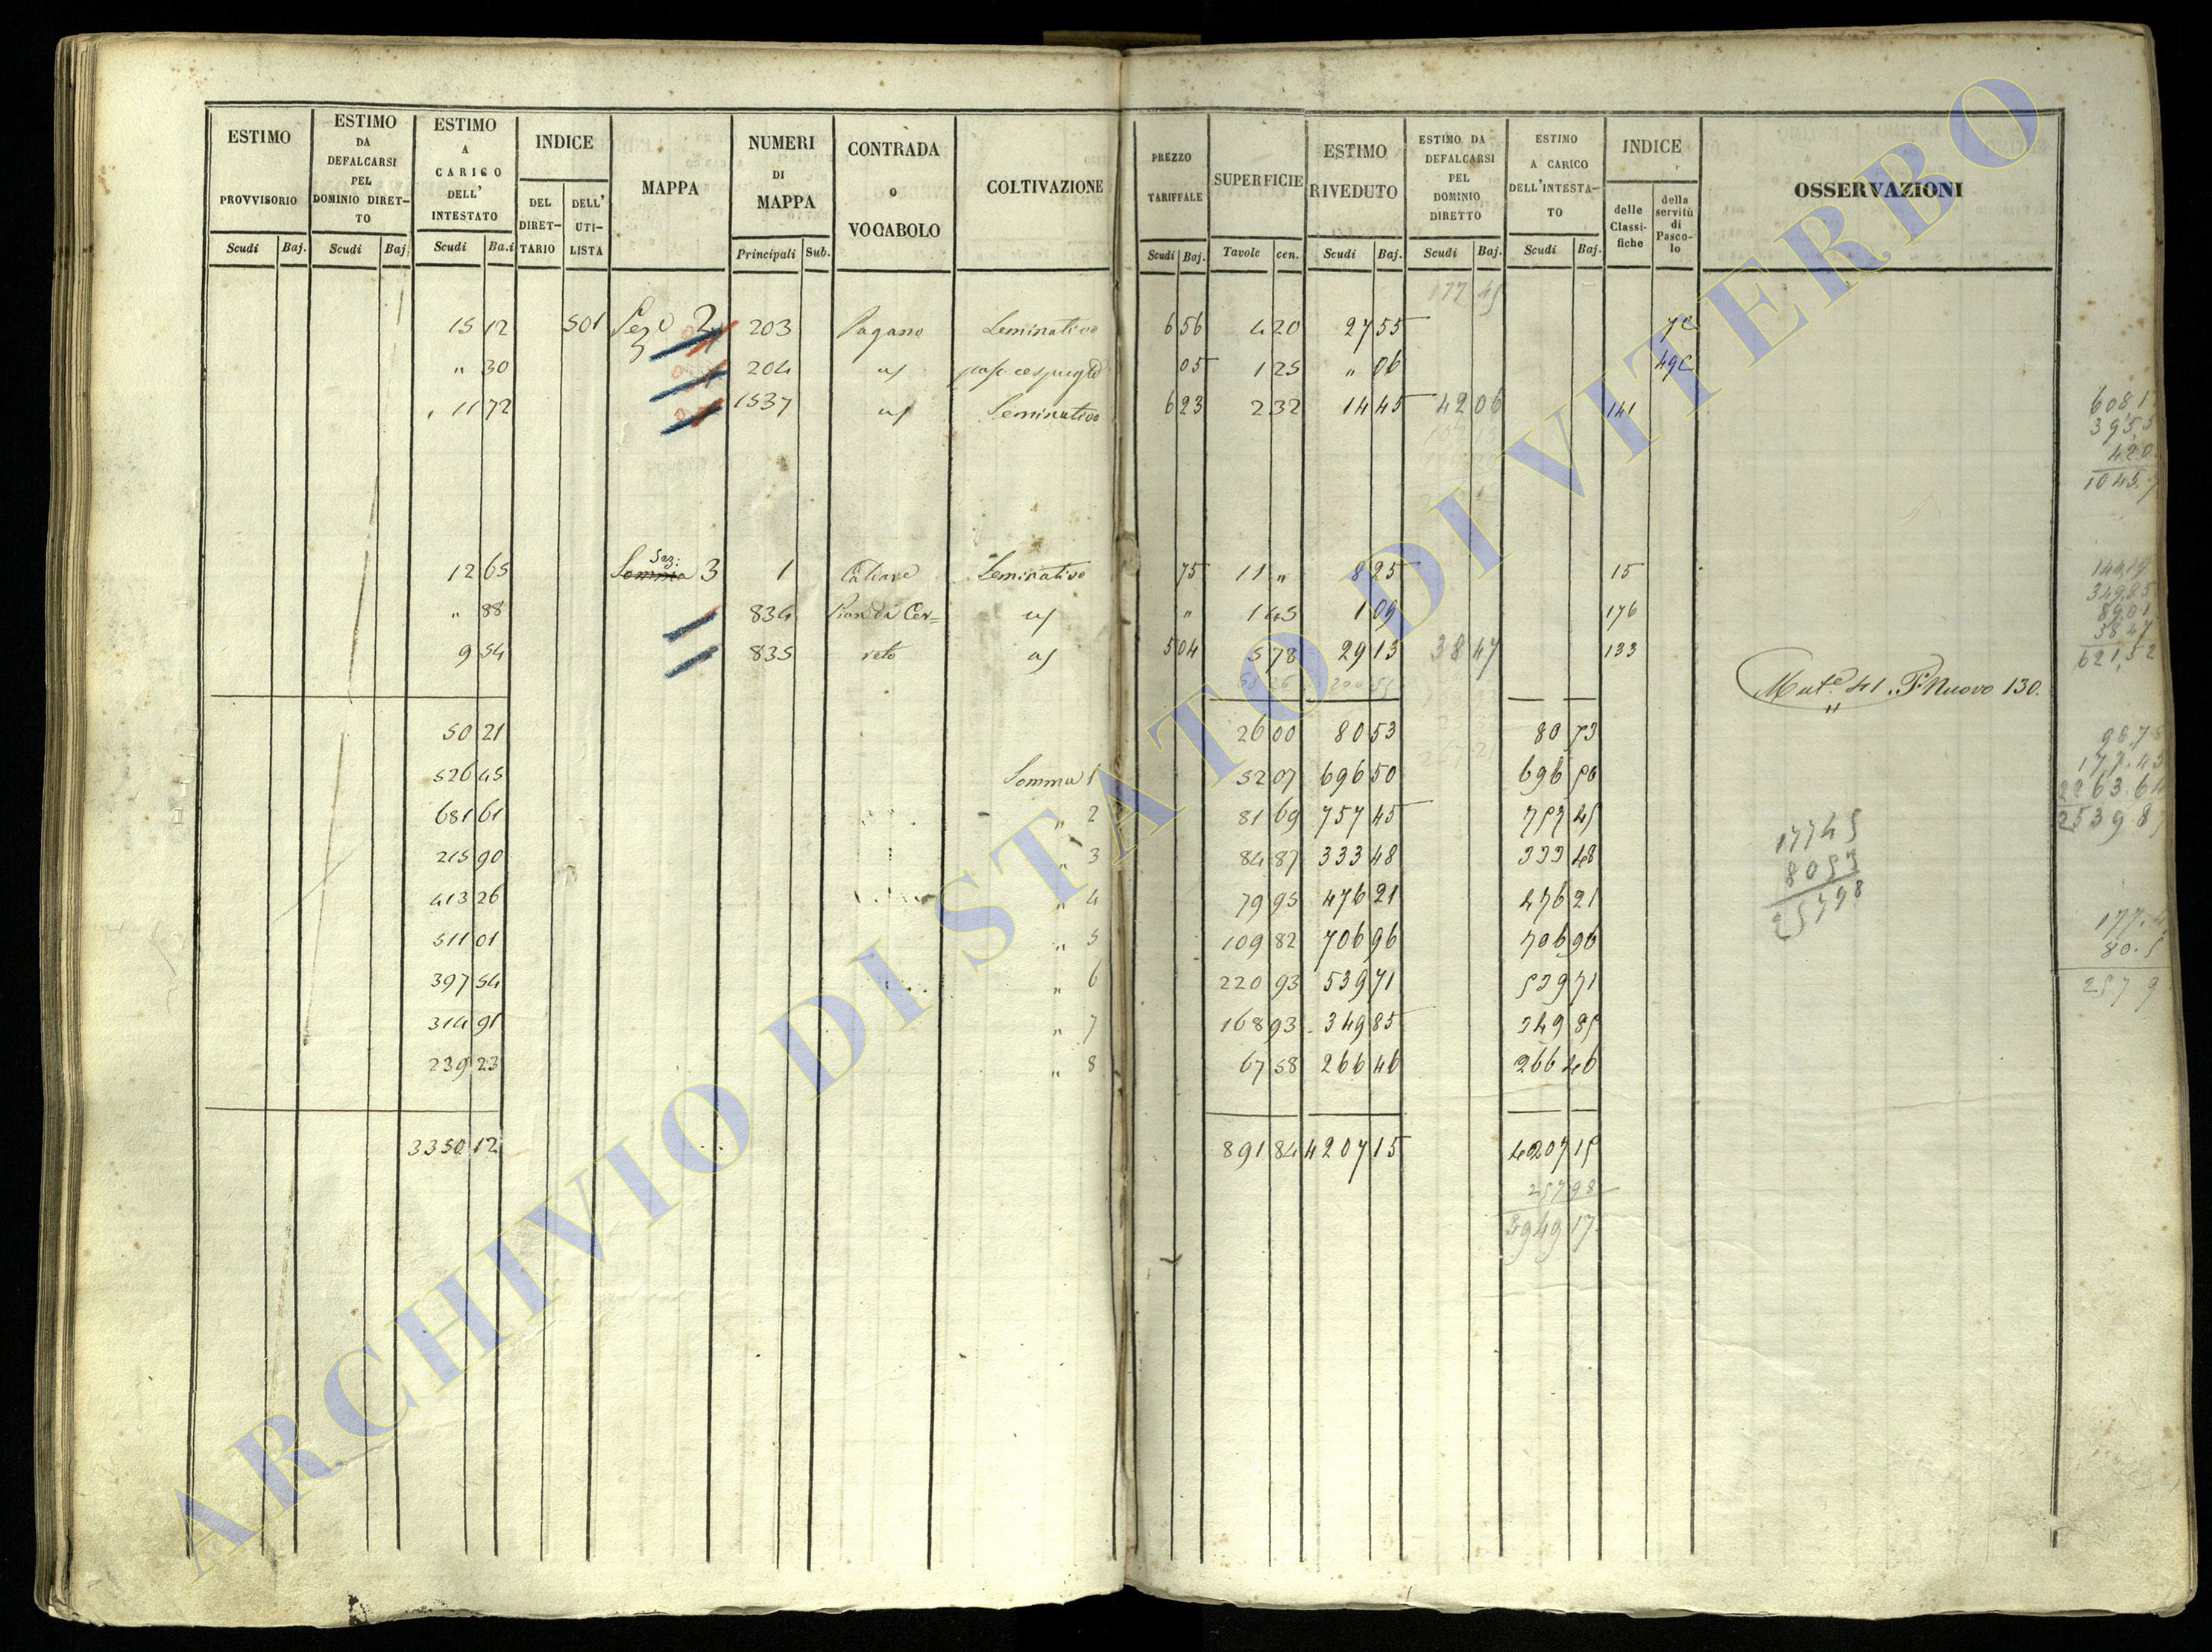 ESTIMO PROVVISORIO Scudi Baj.
ESTIMO DA DEFALCARSI PEL DOMINIO DIRETTO Scudi Baj.
ESTIMO A CARICO DELL' INTESTATO Scudi Ba.i
INDICE DEL DIRET-TARIO DELL' UTI-LISTA
MAPPA
NUMERI DI MAPPA Principali Sub.
CONTRADA o VOCABOLO
COLTIVAZIONE
PREZZO TARIFFALE Scudi Baj.
SUPERFICIE Tavole cen.
ESTIMO RIVEDUTO Scudi Baj.
ESTIMO DA DEFALCARSI PEL DOMINIO DIRETTO Scudi Baj.
ESTIMO A CARICO DELL'INTESTA-TO Scudi Baj.
INDICE delle Classi-fiche della servitù di Pasco-lo
OSSERVAZIONI
177 45
15 12 501 Sez.e 2 203 Pagano Seminativo 6 56 4 20 27 55
" 30 204 " 05 1 25 " 06 49C
11 72 1537 Seminativo 6 23 2 32 14 45 42 06 141
12 65 Somma Sez: 3 1 Seminativo 75 11 " 8 25 15
" 88 834 Pian di Cer= " 1 45 1 09 176
9 54 835 reto 5 04 5 78 29 13 38 47 133
Mut.e 41. P. Nuovo 130.
50 21 26 00 80 53 80 53
526 45 Somma 1 52 07 696 50 696 50
681 61 " 2 81 69 757 45 757 45
215 90 " 3 84 87 333 48 333 48
413 26 " 4 79 95 476 21 476 21
511 01 " 5 109 82 706 96 706 96
397 54 " 6 220 93 539 71 539 71
314 91 " 7 168 93 349 85 349 85
239 23 " 8 67 58 266 46 266 46
3350 12 891 84 4207 15 4207 15
257 98
3949 17
177 45
80 53
257 98
6081
395,5
420
1045,7
144,19
349,85
89,01
38,47
621,52
98,78
177.45
2263.64
2539 8
177.4
80.5
257 9
ARCHIVIO DI STATO DI VITERBO